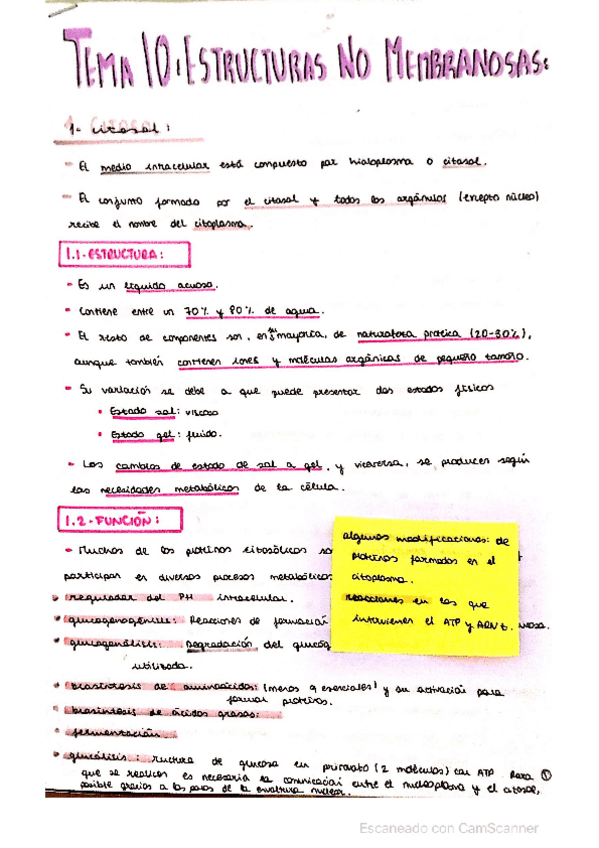 TEMA 10: ESTRUCTURAS NO MEMBRANOSAS:
1- citosol:
- El medio intracelular está compuesto por hialoplasma o citosol.
- El conjunto formado por el citosol y todos los orgánulos (excepto núcleo)
recibe el nombre del citoplasma.
1.1- ESTRUCTURA:
- Es un líquido acuoso.
- Contiene entre un 70% y 80% de agua.
- El resto de componentes son, en su mayoría, de naturaleza proteica (20-30%),
aunque también contienen iones y moléculas orgánicas de pequeño tamaño.
- Su variación se debe a que puede presentar dos estados físicos
• Estado sol: viscoso
• Estado gel: fluido.
- Los cambios de estado de sol a gel, y viceversa, se producen según
las necesidades metabólicas de la célula.
1.2- FUNCIÓN:
• Muchas de las proteínas citosólicas
participan en diversos procesos metabólicos
• regulador del PH intracelular.
• glucogenogénesis: Reacciones de formación
• glucogenólisis: Degradación del
utilizada.
• biosíntesis de aminoácidos: (menos 9 esenciales) y su activación para
formar proteínas.
• biosíntesis de ácidos grasos:
• fermentación
• glucólisis: ruptura de glucosa en piruvato (2 moléculas) con ATP. Para ①
que se realicen es necesaria la comunicación entre el nucleoplasma y el citosol,
posible gracias a los poros de la envoltura nuclear.
algunas modificaciones: de
proteínas formadas en el
citoplasma.
reacciones en las que
intervienen el ATP y ARNt.
Escaneado con CamScanner